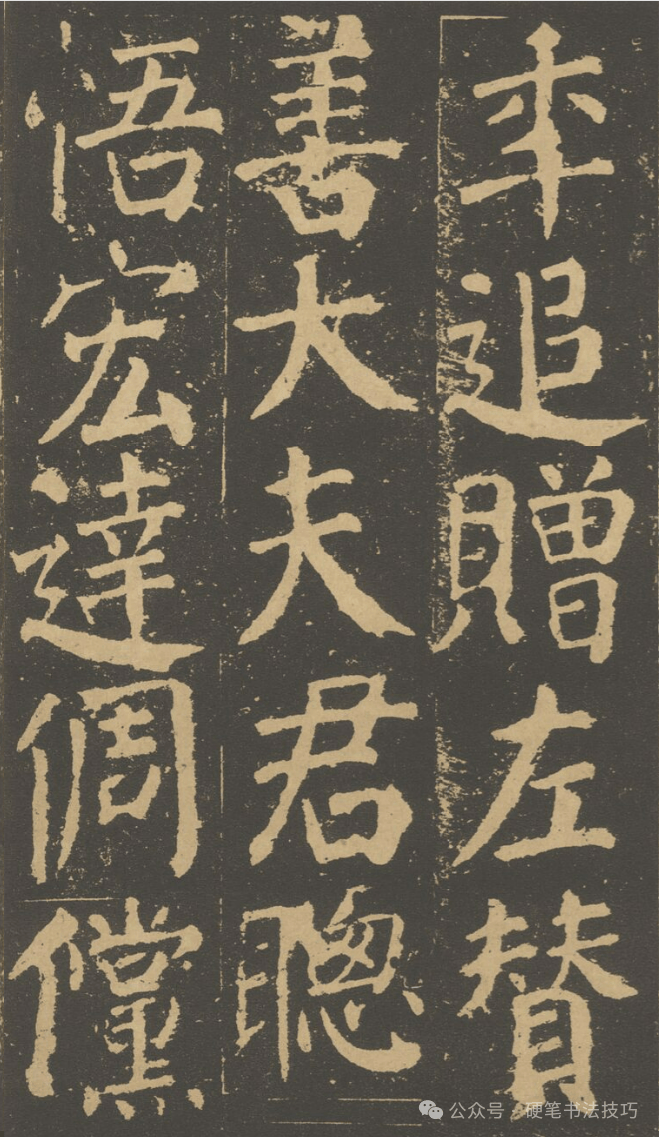 年追贈左贊
善大夫君聰
悟宏達倜儻
公众号 · 硬笔书法技巧